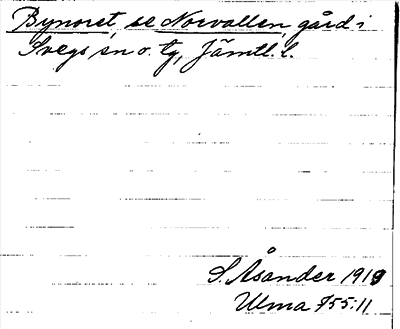 Bynoret, se Norvallen, gård i
Svegs sn o. tg, Jämtl. l.
S. Åsander 1919
Ulma 755:11